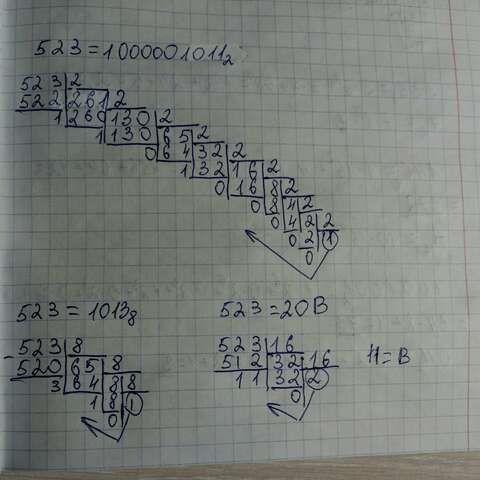 523=1000001011₂
523|2
522|261|2
1|260|130|2
1|130|65|2
0|64|32|2
1|32|16|2
0|16|8|2
0|8|4|2
0|4|2|2
0|2|1
0
523=1013₈
-523|8
520|65|8
3|64|8|8
1|8|1
0
523=20B
523|16
512|32|16
11|32|2
0
11=B